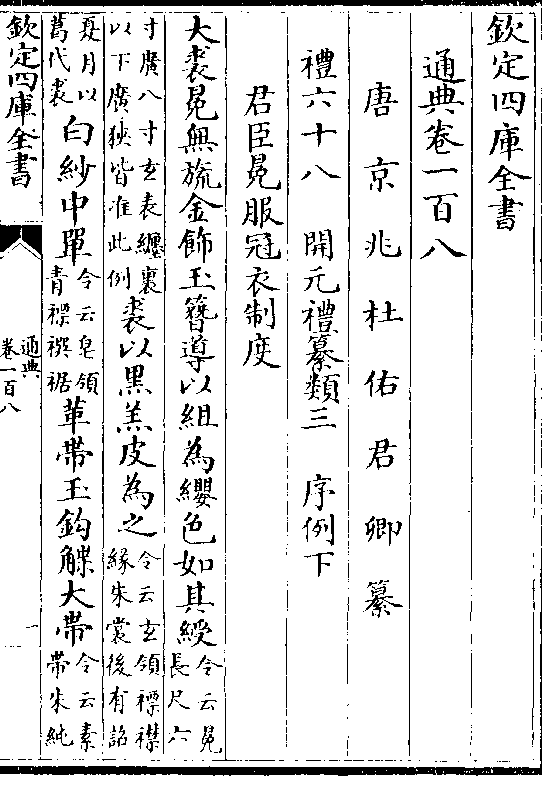 欽定四庫全書
通典卷一百八
唐京兆杜佑君卿纂
禮六十八 開元禮纂類三 序例下
君臣冕服冠衣制度
大裘冕無旒金飾玉簪導以組為纓色如其綬令云冕長尺六
寸廣八寸玄表纁裏以下廣狹皆准此例裘以黑羔皮為之令云玄領褾襟緣朱裳後有詔
夏月以葛代裘白紗中單令云皂領青褾襈裾革帶玉鈎䚢大帶令云素帶朱純
欽定四庫全書
通典
卷一百八
一